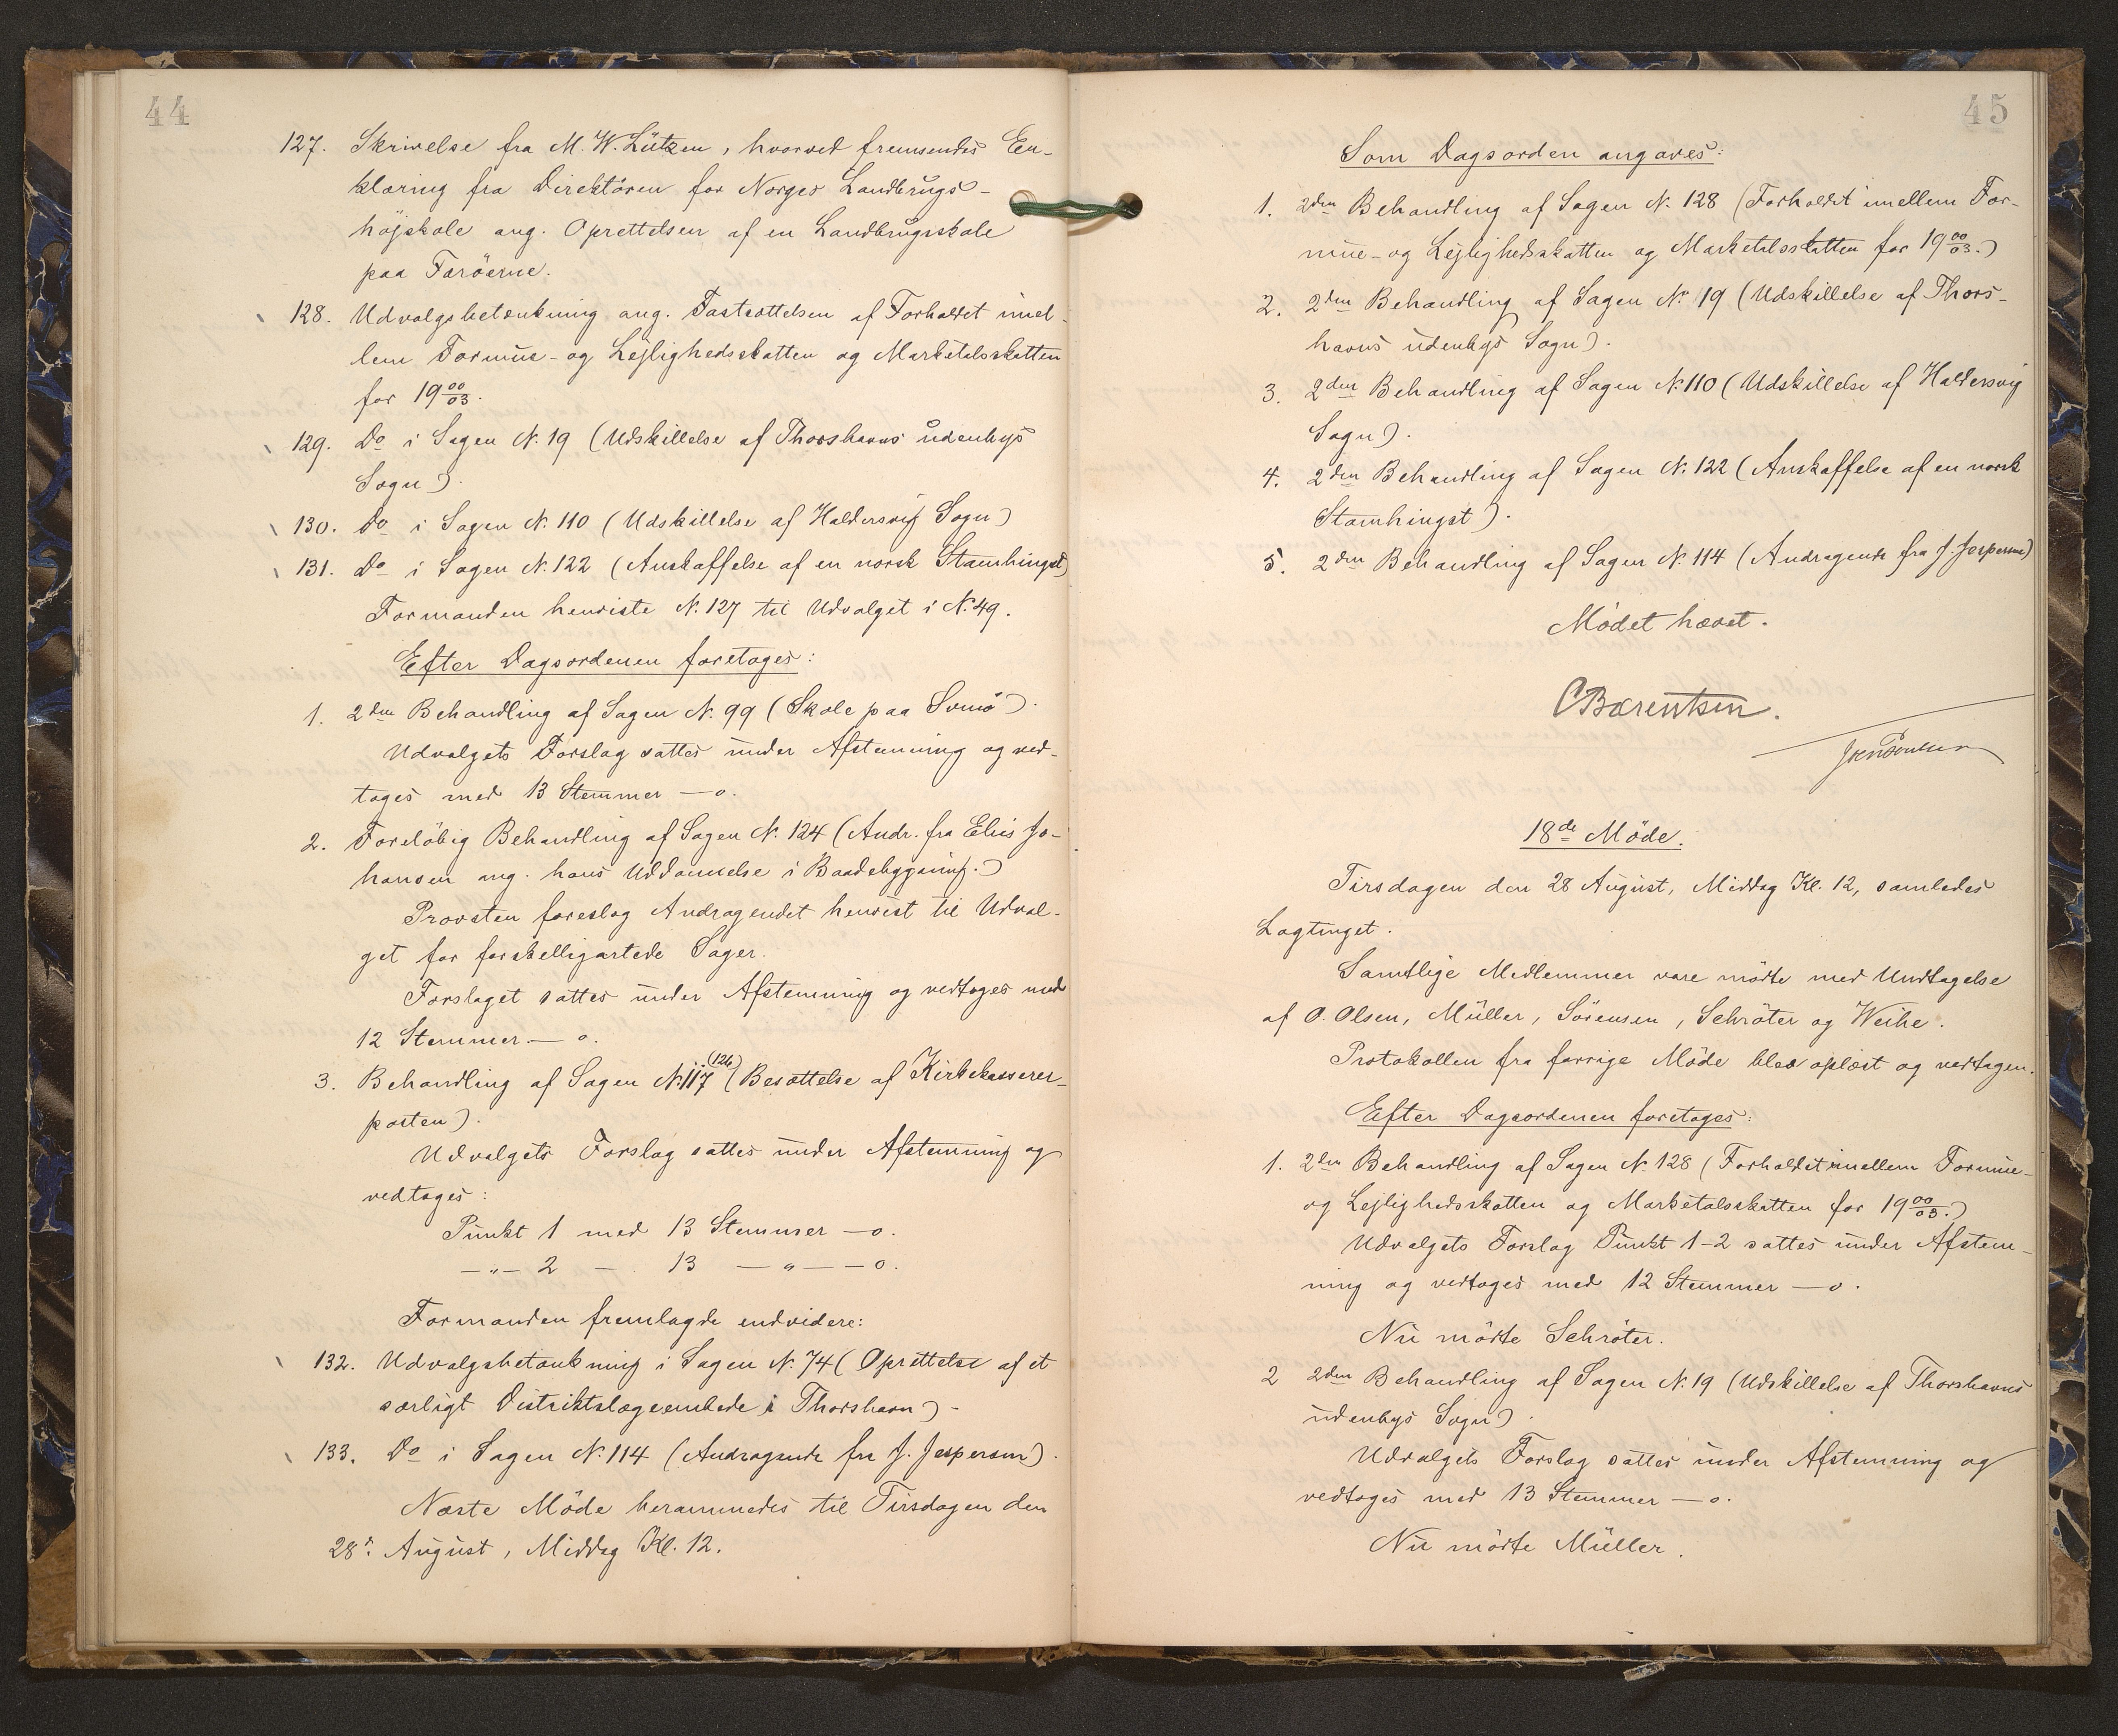 44
127. Skrivelse fra M. W. Lützen, hvorved fremsendes Er-
klæring fra Direktören for Norges Landbrugs-
højskole ang. Oprettelsen af en Landbrugsskole
paa Færöerne.
128. Udvalgsbetænkning ang. Fastsættelsen af Forholdet imel-
lem Formue- og Lejlighedsskatten og Marketalsskatten
for 19 00/03.
129. Do i Sagen N. 19 (Udskillelse af Thorshavns udenbys
Sogn).
130. Do i Sagen N. 110 (Udskillelse af Haldersvig Sogn)
131. Do i Sagen N. 122 (Anskaffelse af en norsk Stamhingst)
Formanden henviste N. 127 til Udvalget i N. 49.
Efter Dagsordenen foretoges:
1. 2den Behandling af Sagen N. 99 (Skole paa Svinö).
Udvalgets Forslag sattes under Afstemning og ved-
toges med 13 Stemmer — o.
2. Foreløbig Behandling af Sagen N. 124 (Andr. fra Elias Jo-
hansen ang. hans Uddannelse i Baadebygning.)
Provsten foreslog Andragendet henvist til Udval-
get for forskelligartede Sager.
Forslaget sattes under Afstemning og vedtoges med
12 Stemmer — o.
3. Behandling af Sagen N. 117 (126) (Besættelse af Kirkekasserer-
posten).
Udvalgets Forslag sattes under Afstemning og
vedtoges:
Punkt 1 med 13 Stemmer — o.
— „ — 2 — 13 — „ — — o.
Formanden fremlagde endvidere:
132. Udvalgsbetænkning i Sagen N. 74 (Oprettelse af et
særligt Distriktslægeembede i Thorshavn) -
133. Do i Sagen N. 114 (Andragende fra J. Jespersen).
Næste Möde berammedes til Tirsdagen den
28de August, Middag Kl. 12.
45
Som Dagsorden angaves:
1. 2den Behandling af Sagen N. 128 (Forholdet imellem For-
mue- og Lejlighedsskatten og Marketalsskatten for 19 00/03.)
2. 2den Behandling af Sagen N. 19 (Udskillelse af Thors-
havns udenbys Sogn).
3. 2den Behandling af Sagen N. 110 (Udskillelse af Haldersvig
Sogn).
4. 2den Behandling af Sagen N. 122 (Anskaffelse af en norsk
Stamhingst).
5. 2den Behandling af Sagen N. 114 (Andragende fra J. Jespersen)
Mödet hævet.
C Bærentsen.
18de Möde.
Tirsdagen den 28 August, Middag Kl. 12, samledes
Lagtinget.
Samtlige Medlemmer vare mödte med Undtagelse
af O. Olsen, Müller, Sörensen, Schröter og Weihe.
Protokollen fra forrige Möde blev oplæst og vedtagen.
Efter Dagsordenen foretoges:
1. 2den Behandling af Sagen N. 128 (Forholdet imellem Formue-
og Lejlighedsskatten og Marketalsskatten for 19 00/03.)
Udvalgets Forslag Punkt 1-2 sattes under Afstem-
ning og vedtoges med 12 Stemmer — o.
Nu mödte Schröter.
2 2den Behandling af Sagen N. 19 (Udskillelse af Thorshavns
udenbys Sogn).
Udvalgets Forslag sattes under Afstemning og
vedtoges med 13 Stemmer — o.
Nu mödte Müller.